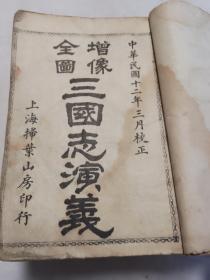 中華民國十二年三月校正
增像全圖
三國志演義
上海掃葉山房印行